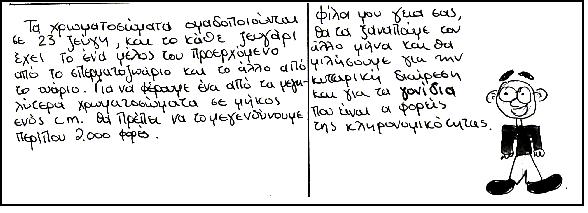 Τα χρωματοσώματα ομαδοποιούνται
σε 23 ζεύγη, και το κάθε ζευγάρι
έχει το ένα μέλος του προερχόμενο
από το σπερματοζωάριο και το άλλο από
το ωάριο. Για να φέρουμε ένα από τα μεγα-
λύτερα χρωματοσώματα σε μήκος
ενός c.m. θα πρέπει να το μεγενθύνουμε
περίπου 2.000 φορές.
φίλοι μου γεια σας,
θα τα ξαναπούμε τον
άλλο μήνα και θα
μιλήσουμε για την
κυτταρική διαίρεση
και για τα γονίδια
που είναι οι φορείς
της κληρονομικότητας.